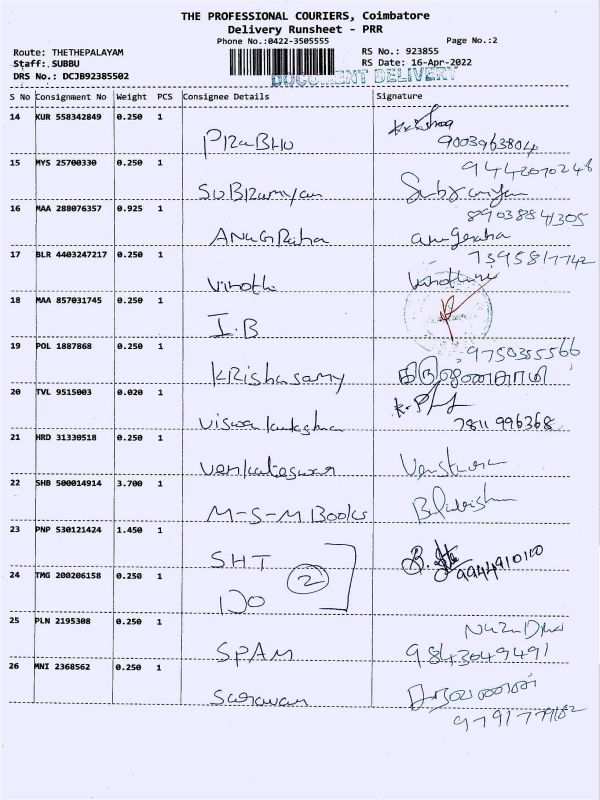 THE PROFESSIONAL COURIERS, Coimbatore
Delivery Runsheet - PRR
Phone No.:0422-3505555 Page No.:2
Route: THETHEPALAYAM RS No.: 923855
Staff: SUBBU RS Date: 16-Apr-2022
DRS No.: DCJB92385502 DOCUMENT DELIVERY
S No Consignment No Weight PCS Consignee Details Signature
14 KUR 558342849 0.250 1
PRaBHU 9003963804
15 MYS 25700330 0.250 1 9442070248
SUBRamyan
16 MAA 288076357 0.925 1 8903884305
ANUGRaha anugeraha
17 BLR 4403247217 0.250 1 7395817742
Vinoth Vinothini
18 MAA 857031745 0.250 1
I.B
19 POL 1887868 0.250 1 9750355566
KRishasamy
20 TVL 9515003 0.020 1
7811996368
21 HRD 31330518 0.250 1
Venkateswar
22 SHB 500014914 3.700 1
M-S-M Books
23 PNP 530121424 1.450 1
SHT 9944910100
24 TMG 200206158 0.250 1 2
DO
25 PLN 2195308 0.250 1
SPAM 9843049491
26 MNI 2368562 0.250 1
Saravan சரவணன்